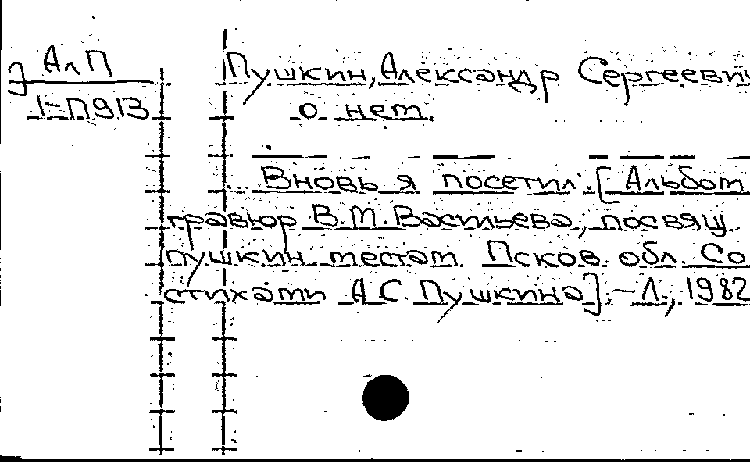 АлП
1-П913
Пушкин, Александр Сергеевич
о нем.
Вновь я посетил: [Альбом
гравюр В.М.Васильева, посвящ.
пушкин. местам Псков. обл. Со
стихами А С Пушкина]. - Л., 1982